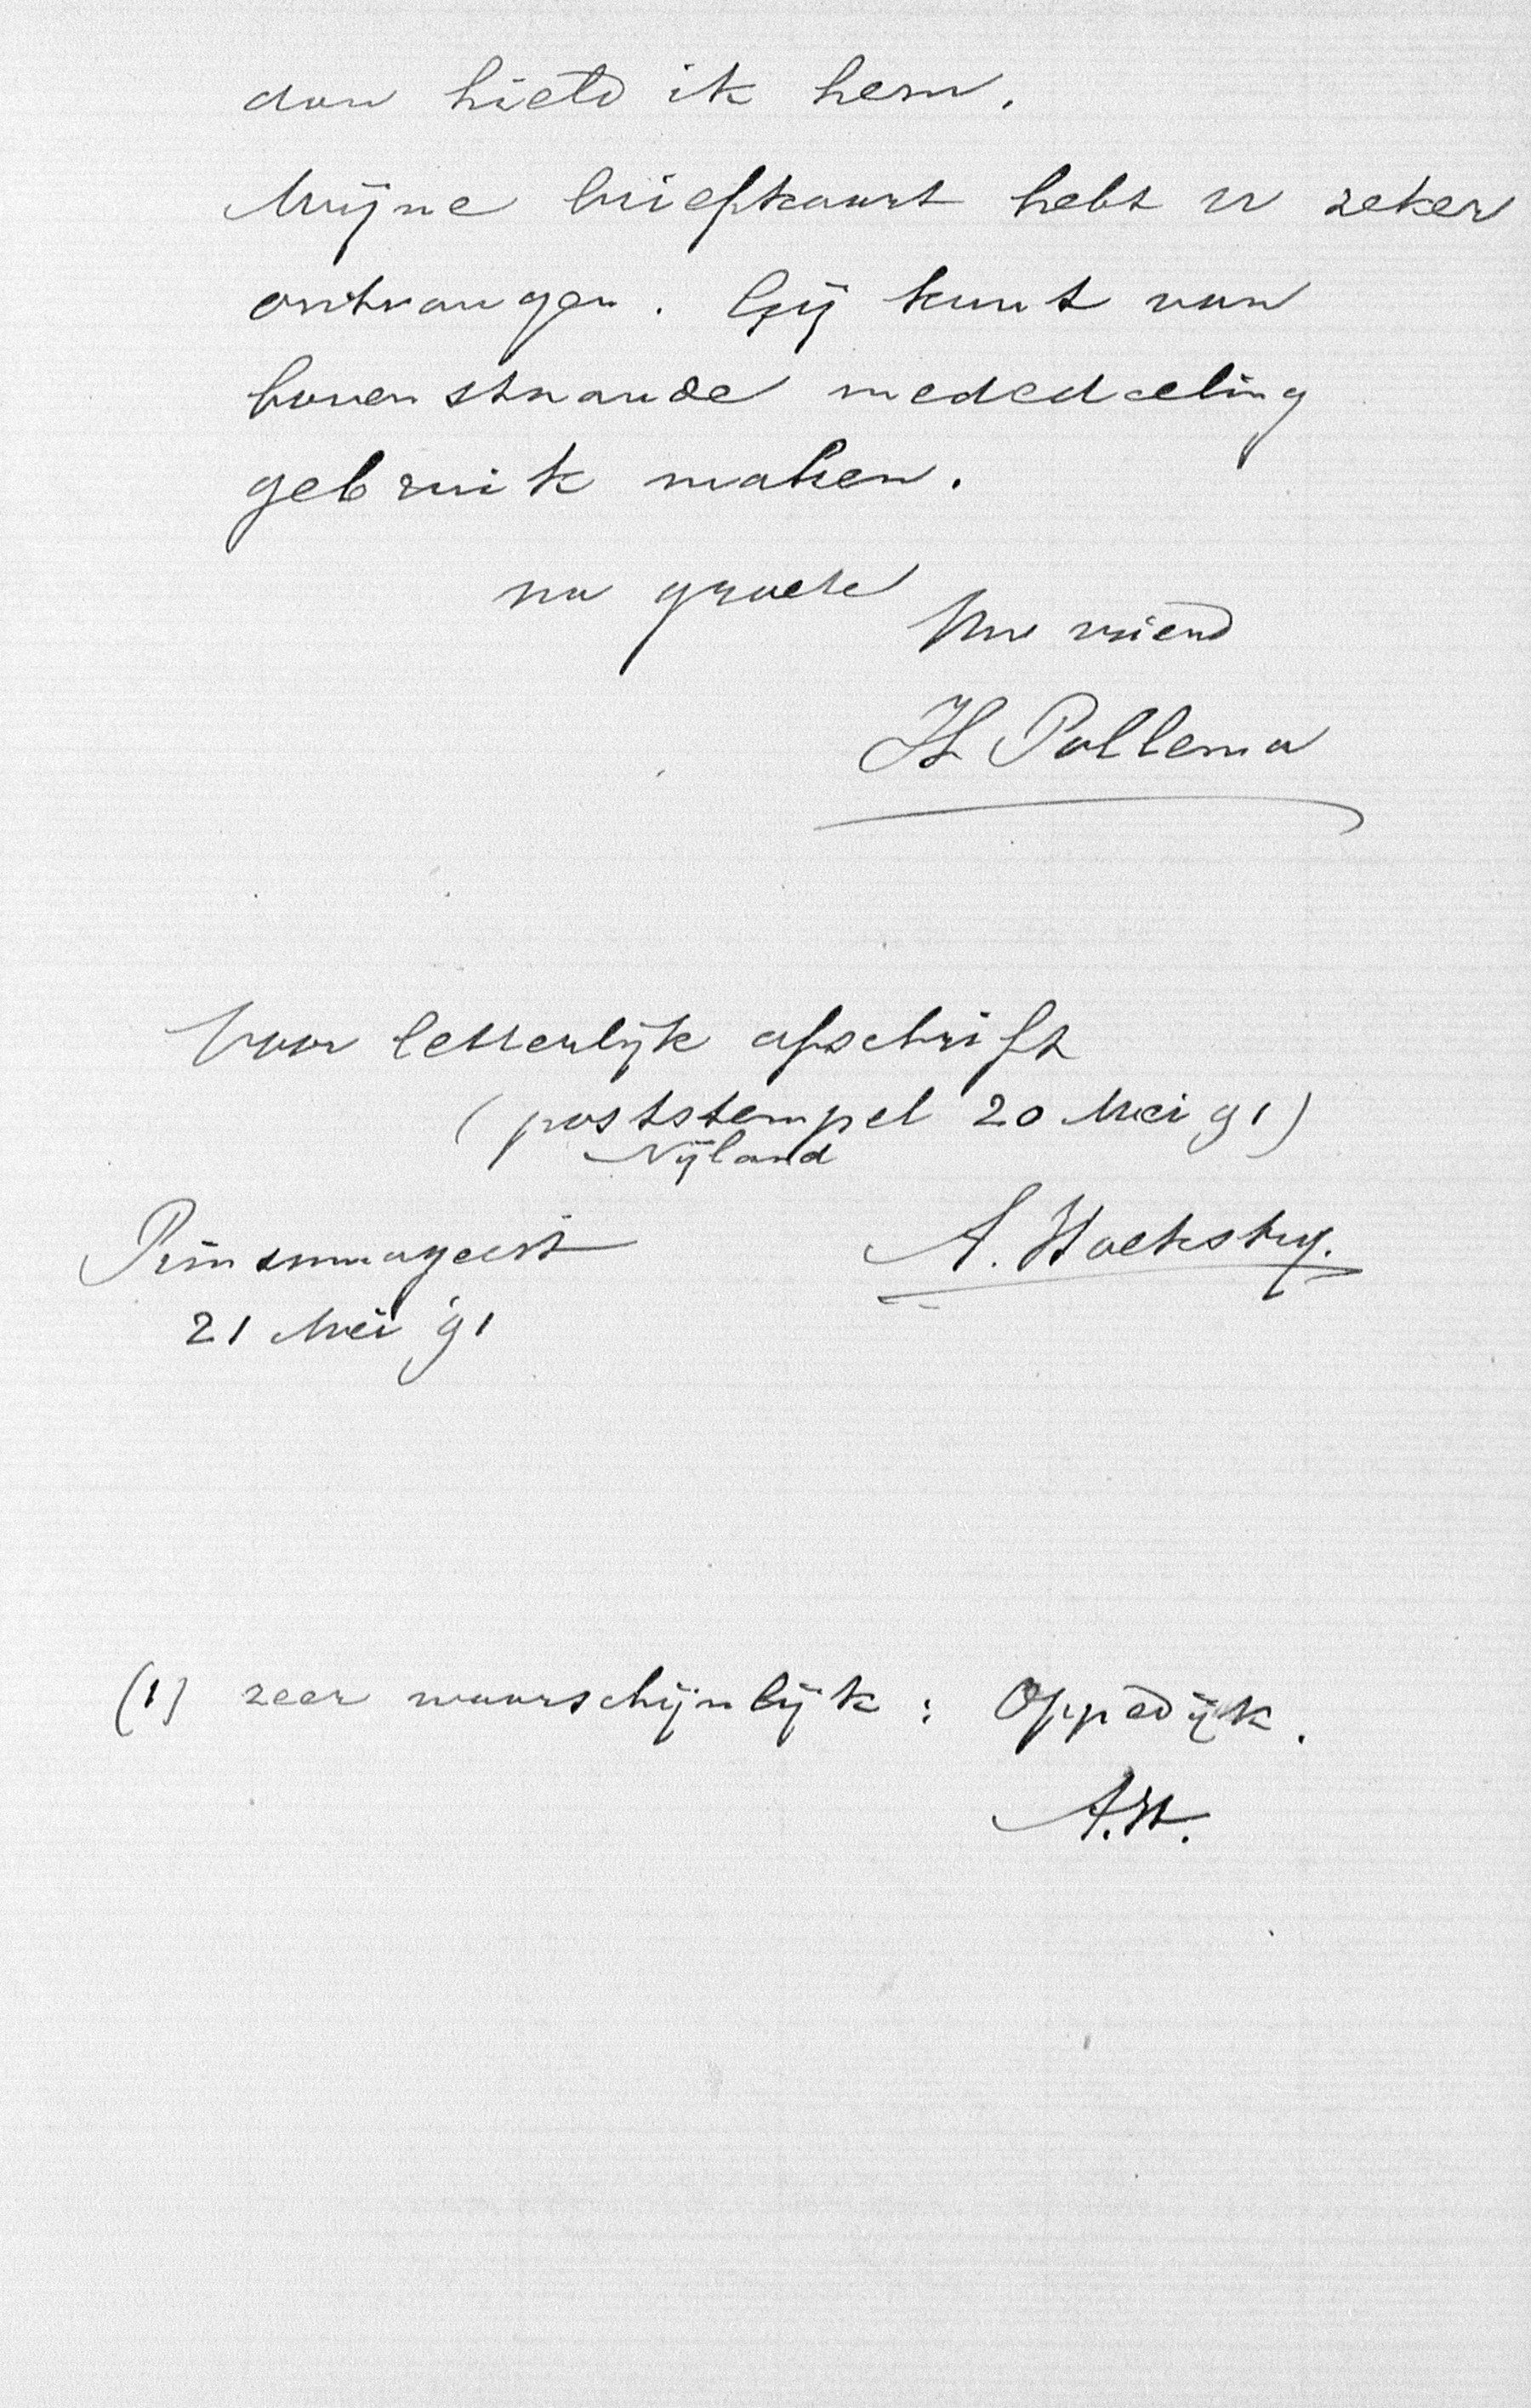 dan hield ik hem.
Mijne briefkaart hebt u zeker
ontvangen. Gij kunt van
bovenstaande mededeeling
gebruik maken.
na groete
Uw vriend
H Pollema
Voor letterlijk afschrift
(poststempel 20 Mei 91)
Nijland
Rinsumageest
A. Hoekstra.
21 Mei '91
(1) zeer waarschijnlijk : Oppedijk.
A.H.